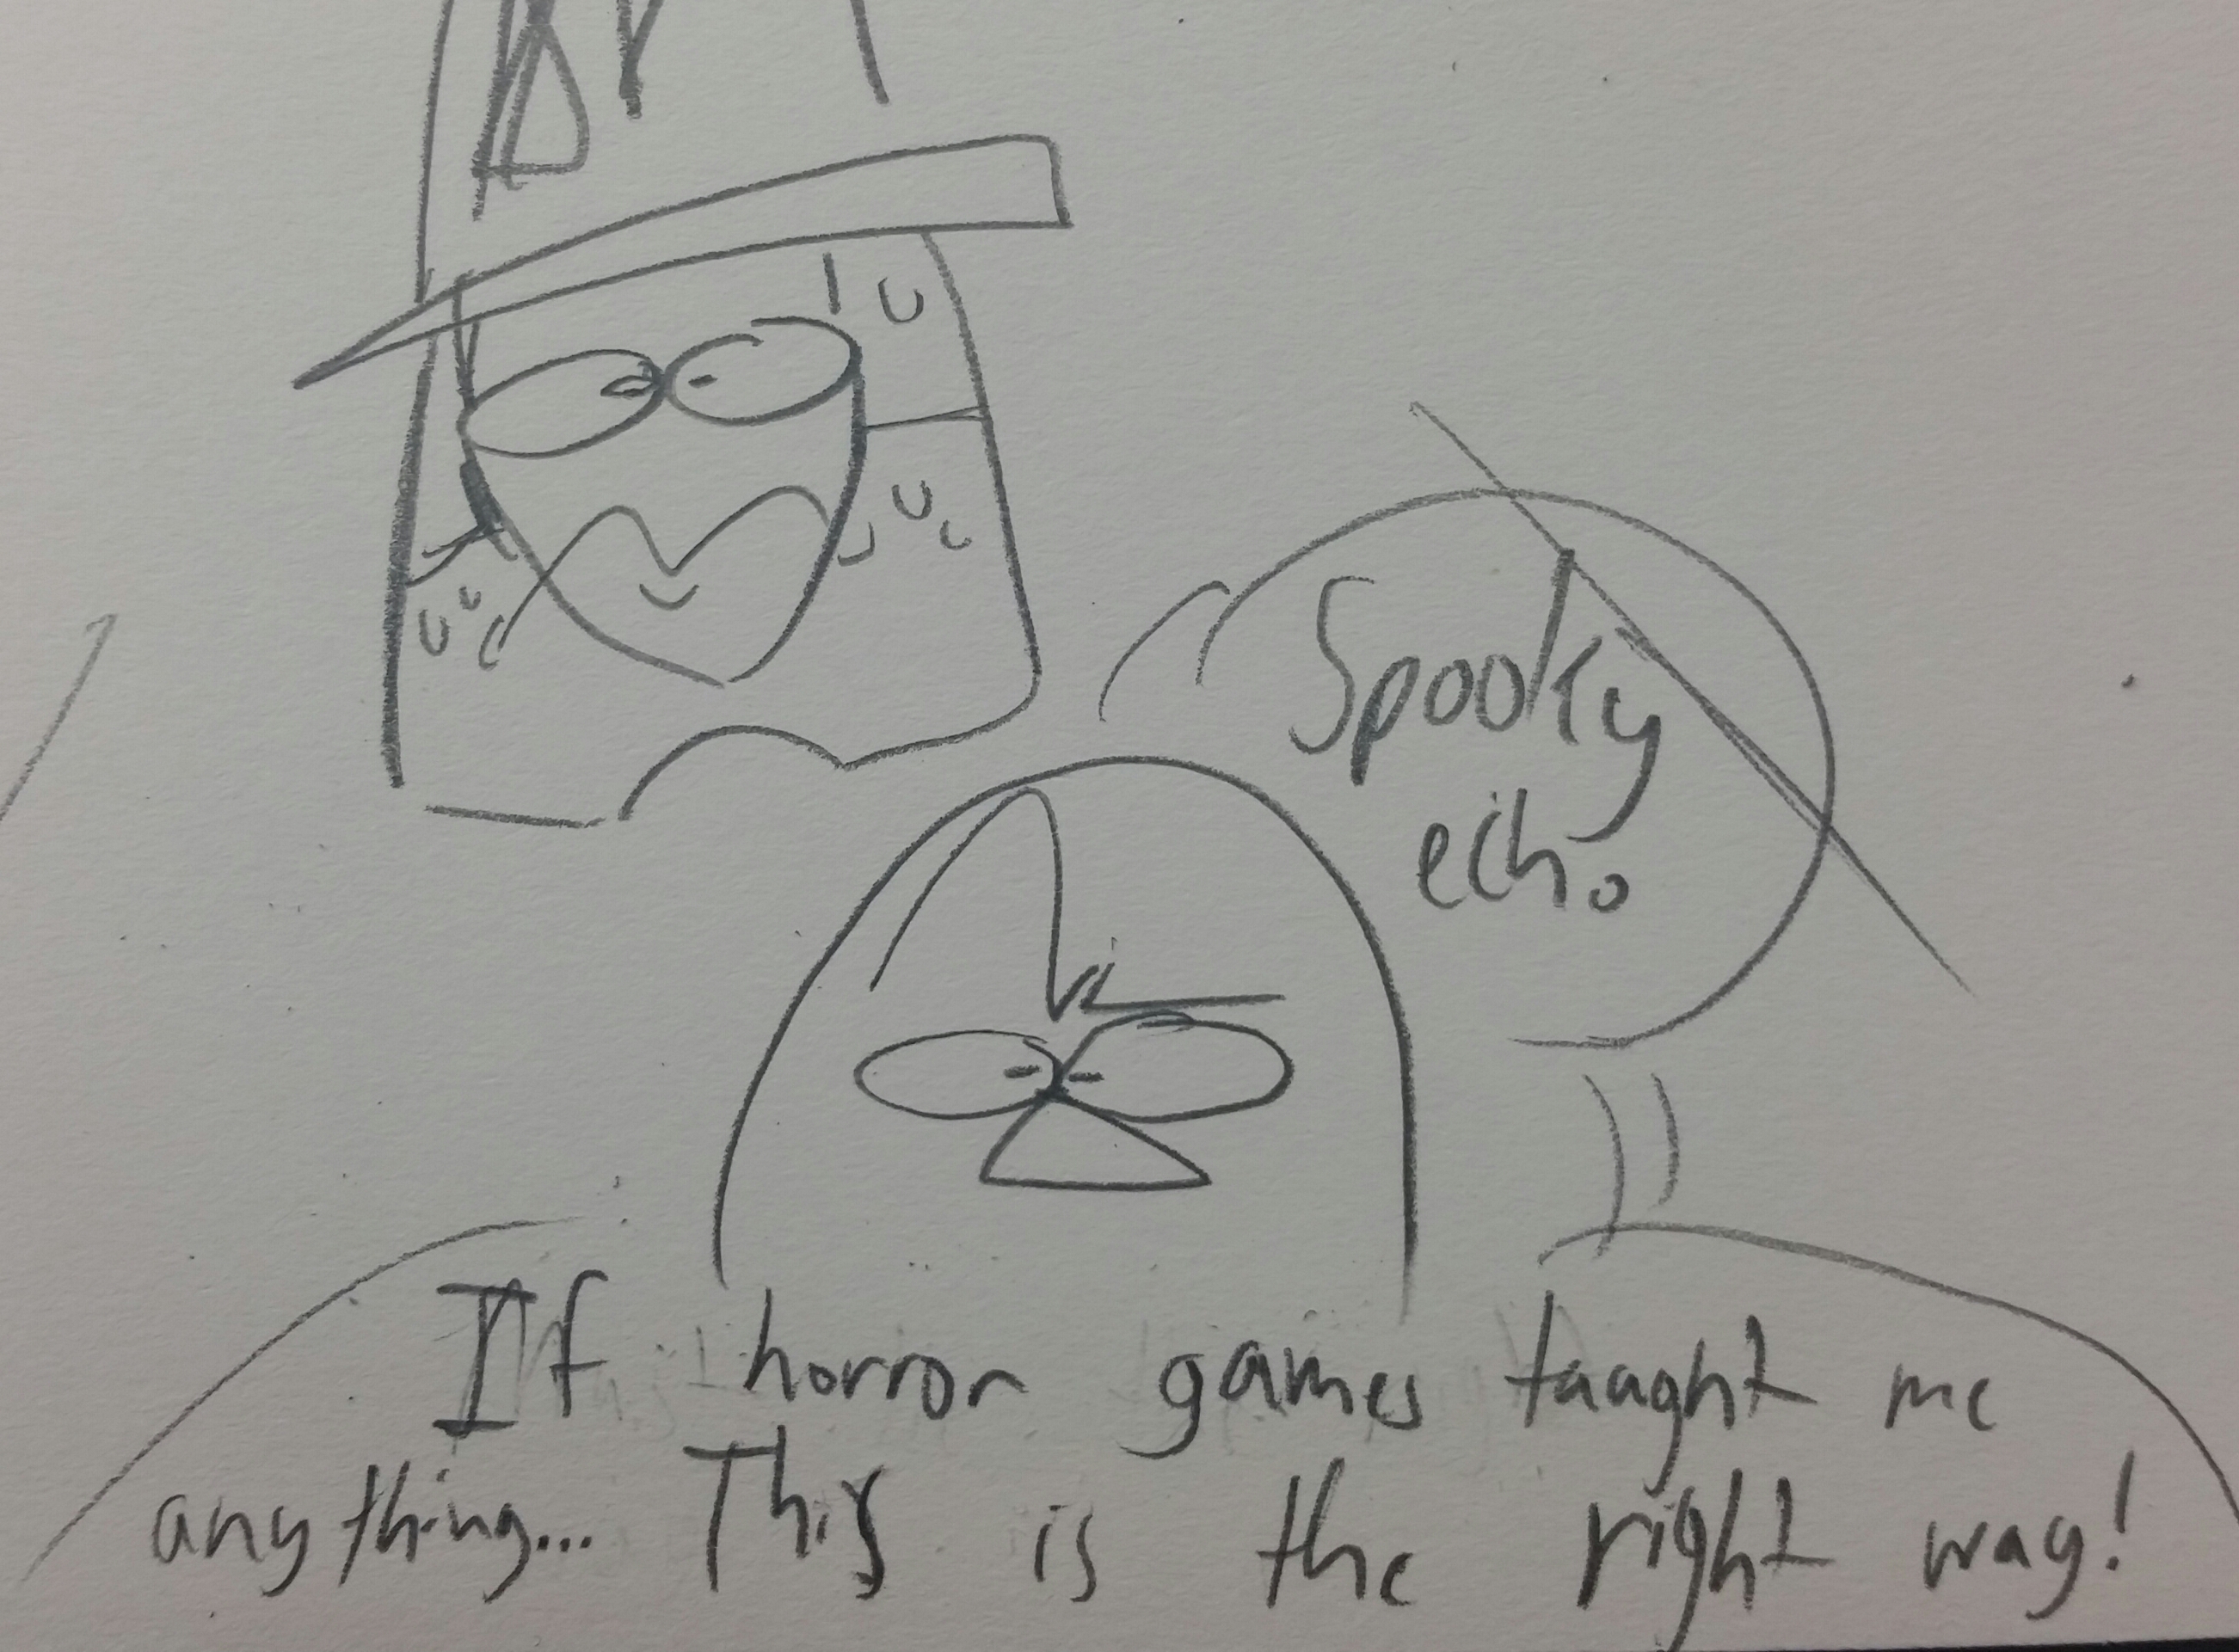 Spooky
echo
If horror games taaght me
anything... This is the right way!